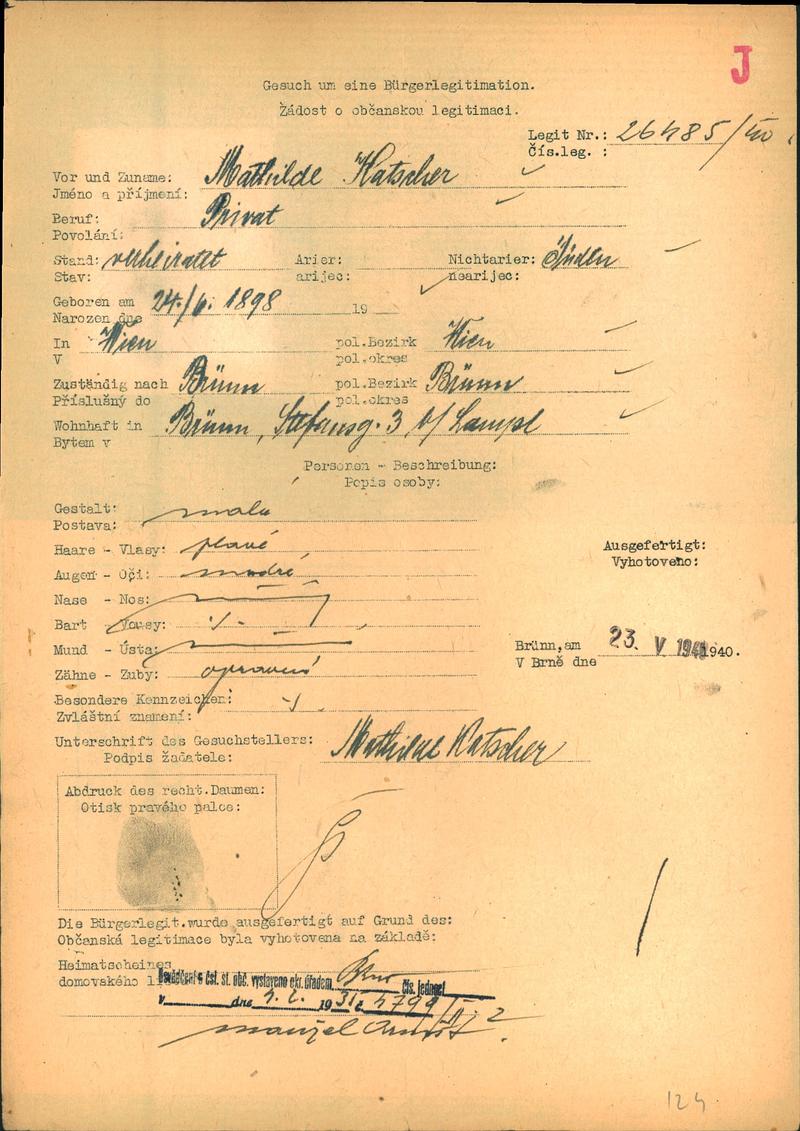 J
Gesuch um eine Bürgerlegitimation.
Žádost o občanskou legitimaci.
Legit Nr.: 26485/
Čís.leg. :
Vor und Zuname: Mathilde Katscher
Jméno a příjmení:
Beruf: Privat
Povolání:
Stand: verheiratet Arier: Nichtarier: Juden
Stav: arijec: nearijec:
Geboren am 24./6. 1898 19
Narozen dne
In Wien pol.Bezirk Wien
V pol.okres
Zuständig nach Brünn pol.Bezirk Brünn
Příslušný do pol.okres
Wohnhaft in Brünn, Stefansg. 3 b/ Lampl
Bytem v
Personen - Beschreibung:
Popis osoby:
Gestalt: malá
Postava:
Haare - Vlasy: plavé
Ausgefertigt:
Vyhotoveno:
Augen - Oči: modré
Nase - Nos:
Bart - Vousy: ./.
Mund - Ústa:
Brünn, am 23. V 1940.
V Brně dne
Zähne - Zuby: opravené
Besondere Kennzeichen: ./.
Zvláštní znamení:
Unterschrift des Gesuchstellers: Mathilde Katscher
Podpis žadatele:
Abdruck des recht.Daumen:
Otisk pravého palce:
Die Bürgerlegit.wurde ausgefertigt auf Grund des:
Občanská legitimace byla vyhotovena na základě:
Heimatscheines
domovského
Osvědčení o čsl. st. obč. vystaveno okr. úřadem Brno čís. jednací
v dne 1931 4799
manžel
124